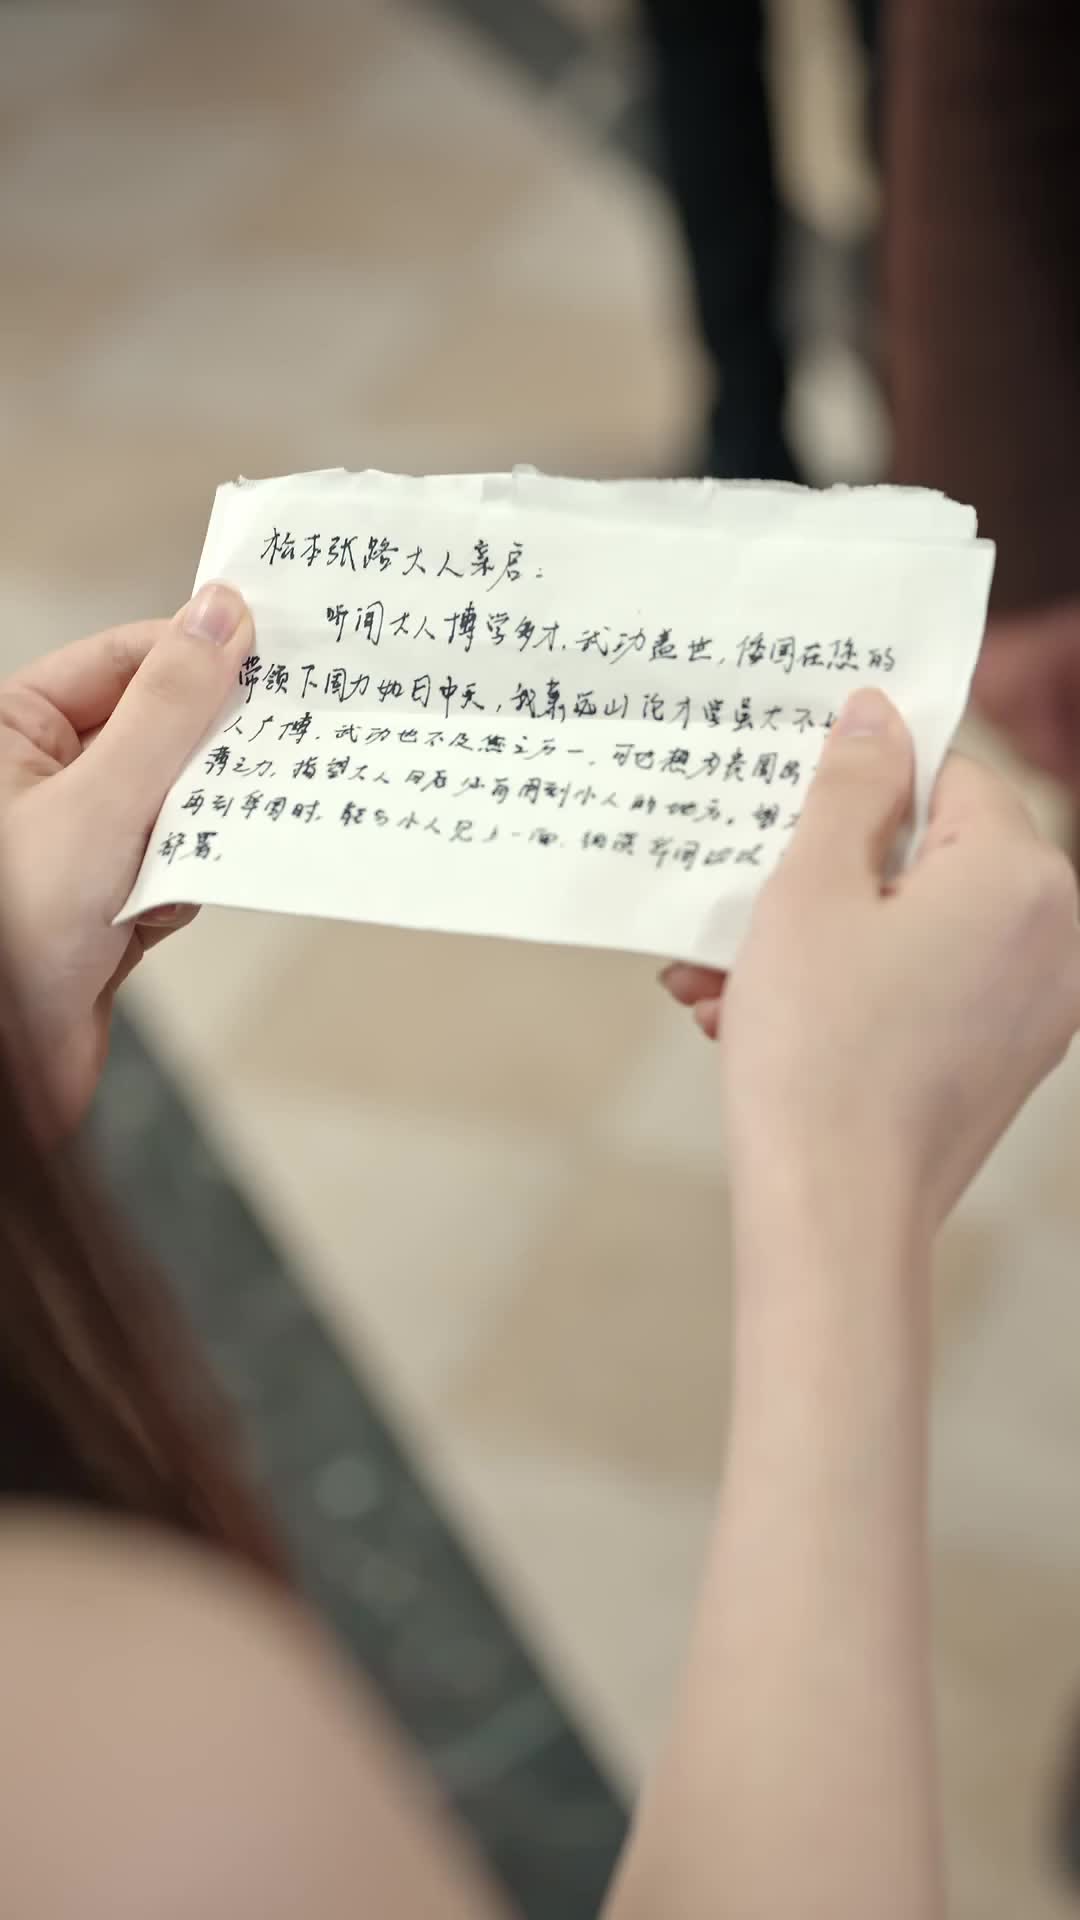 松本张路大人亲启：
听闻大人博学多才，武功盖世，倭国在您的
带领下国力如日中天，我慕远山论才学虽大不如
人广博，武功也不及您之万一，可也想为贵国出
薄之力，指望大人日后少有用到小人的地方。望大
再到华国时，能与小人见上一面，细谈华国
部署。